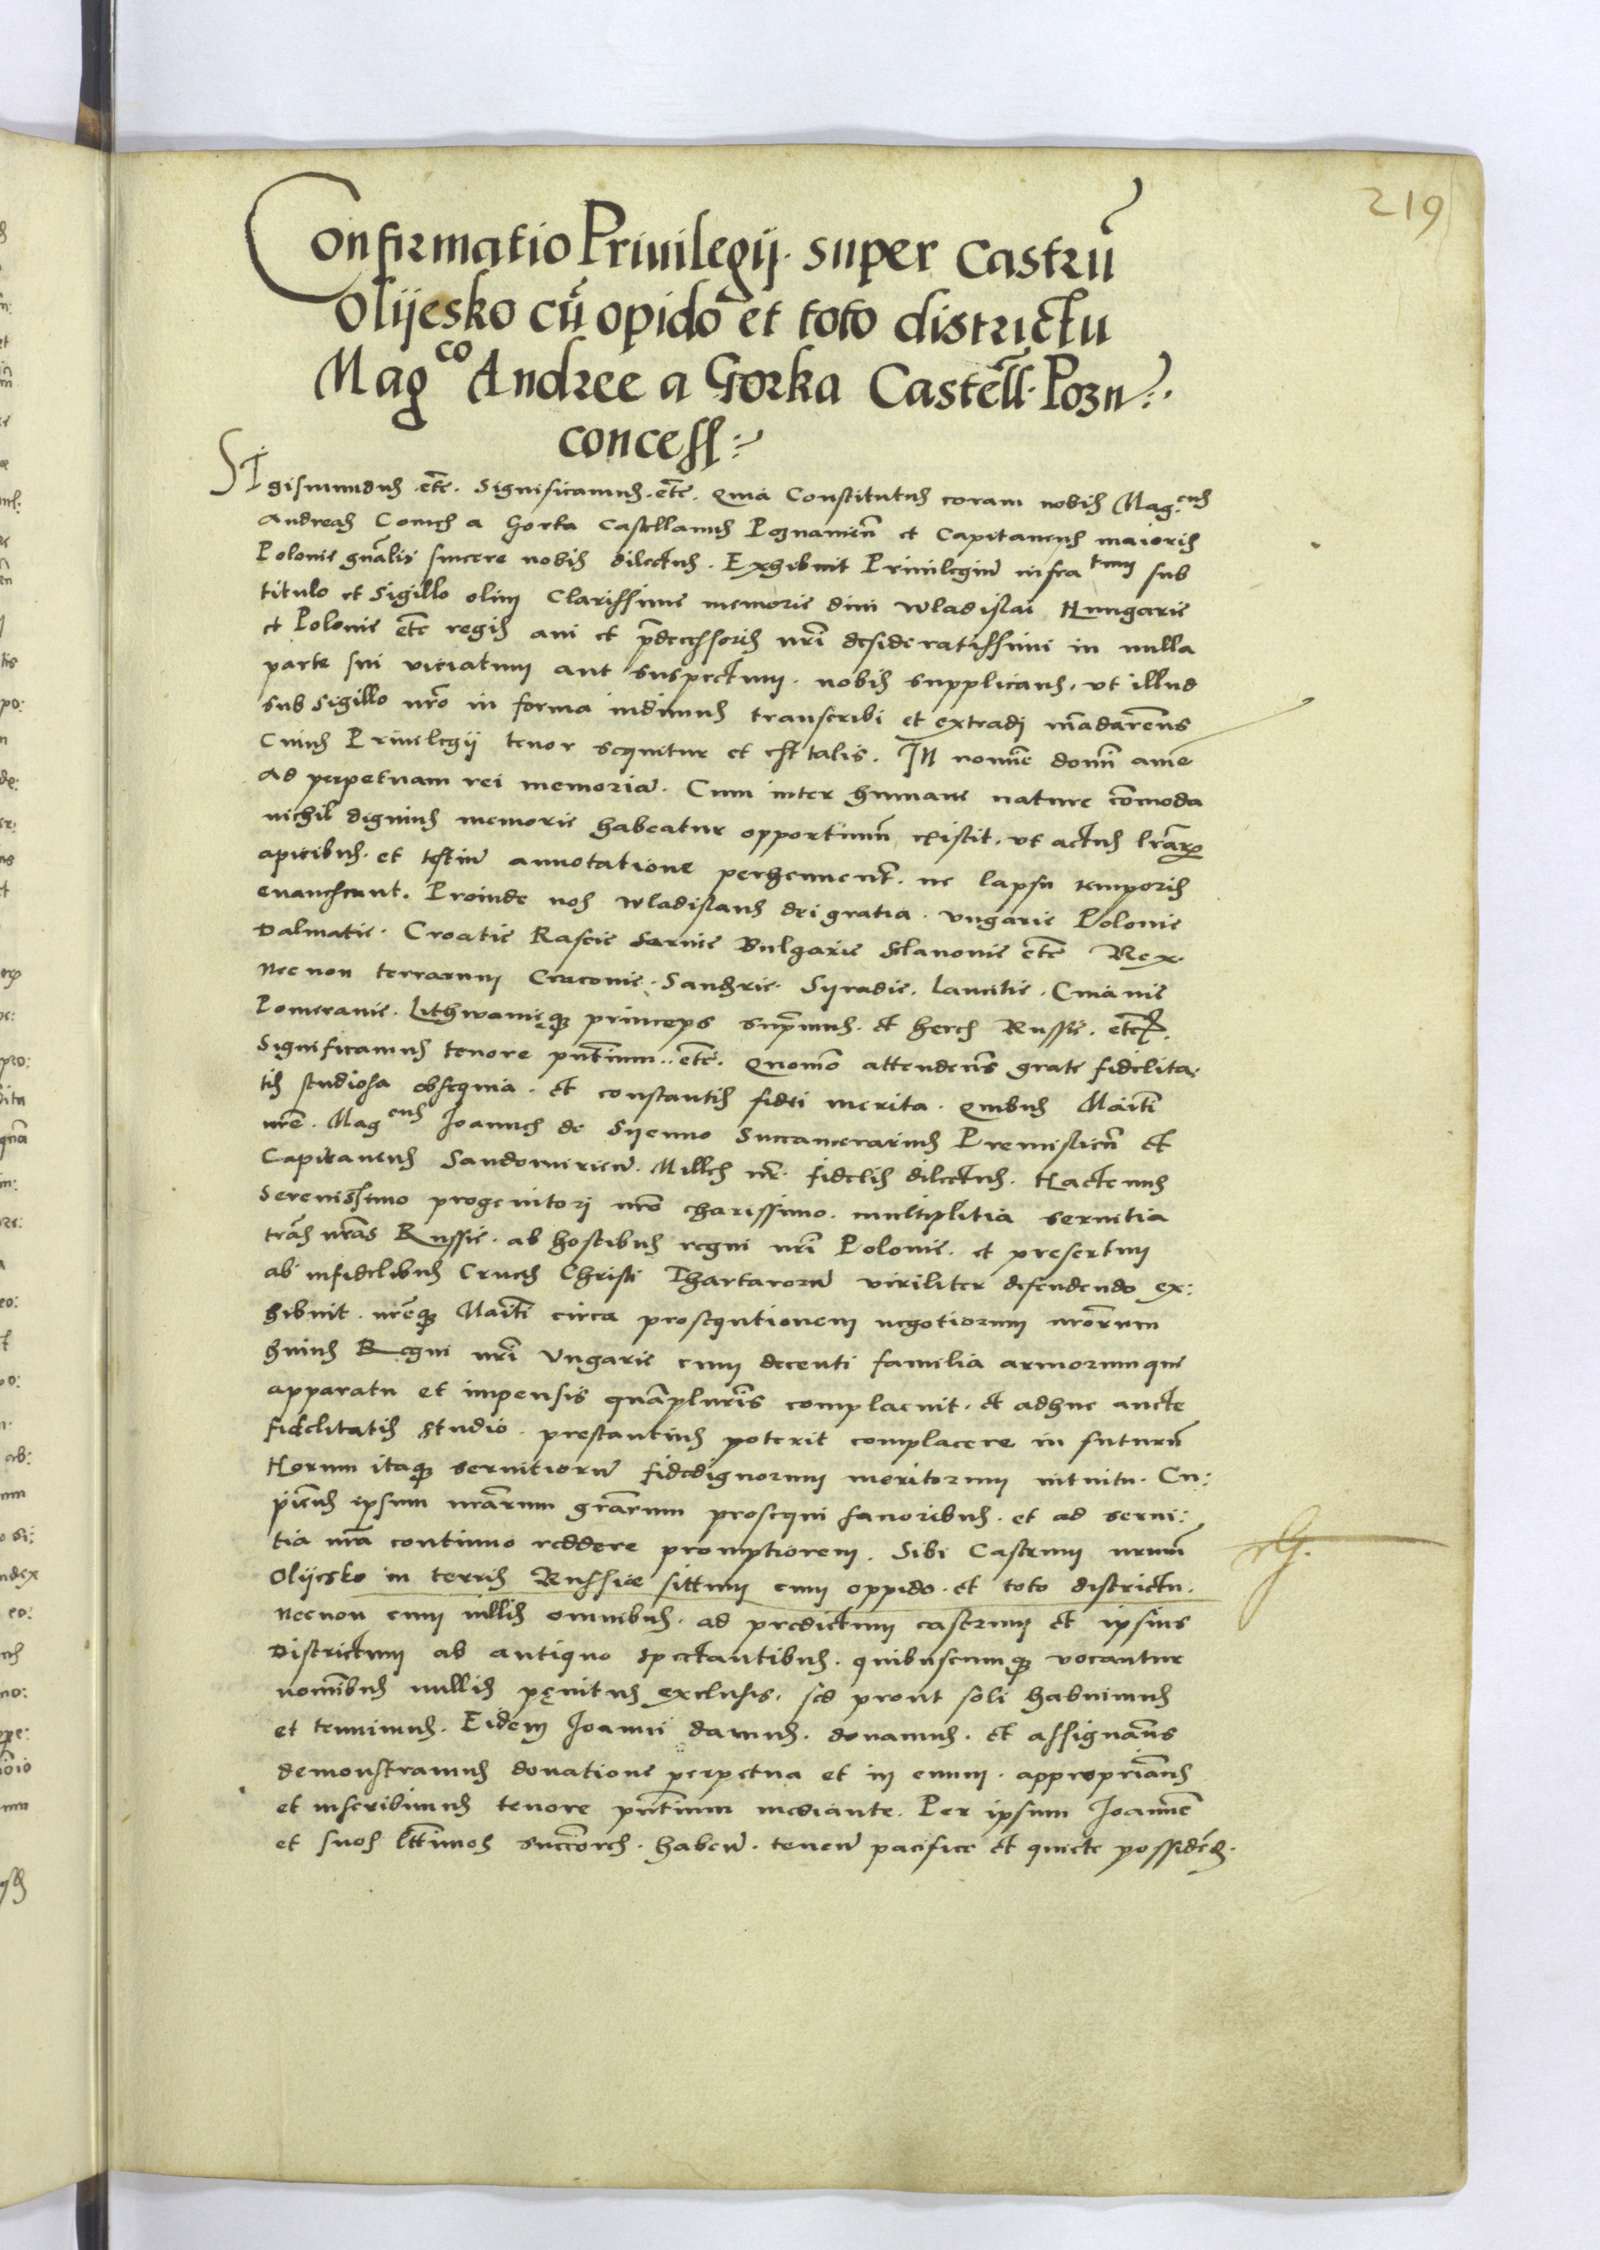 219
Confirmatio Priuilegij. super Castrū
Olijesko cū opido et toto districtu
Mag^co Andree a Gorka Castell̄. Pozn̄:
concess:
SIgismundus etc̄. Significamus. etc̄. Quia Constitutus coram nobis Mag^cus
Andreas Comes a Gorka Castellanus Poznanien̄ et Capitaneus maioris
Polonie gn̄alis sincere nobis dilectus. Exhibuit Priuilegiū infra^tum sub
titulo et Sigillo olim Clarissime memorie dn̄i Wladislai Hungarie
et Polonie etc̄ regis aui et p̄decessoris nr̄i desideratissimi in nulla
parte sui viciatum aut suspectum. nobis supplicans. vt illud
sub Sigillo nr̄o in forma indimus transcribi et extradj mādarem̄s
Cuius Priuilegij tenor sequitur et est talis. IN nomīe domī amē
Ad perpetuam rei memoriā. Cum inter humane nature cōmoda
nichil dignius memorie habeatur opportunū existit. vt actus lr̄arꝝ
apicibus. et testiū annotatione perhennent̄. ne lapsu temporis
euanescant. Proinde nos Wladislaus dei gratia. Vngarie Polonie
Dalmatie. Croatie Rascie Seruie Bulgarie Sclauonie etc̄ Rex.
Necnon terrarum Cracouie. Sandrie. Syradie. Lancitie. Cuiauie
Pomeranie. Lithwanieqꝫ princeps sup̄mus. et heres Russie. etc̄.
Significamus tenore pn̄tium.. etc̄. Quomō attendens grate fidelita.
tis studiosa obsequia. et constantis fidei merita. quibus Maiti
nr̄e. Mag^cus Joannes de Syenno Succamerarius Premislien̄ et
Capitaneus Sandomirien̄. Milles nr̄. fidelis dilectus. Hactenus
Serenissimo progenitorj nr̄o charissimo. multiplitia seruitia
trās nr̄as Russie. ab hostibus regni nr̄i Polonie. et presertim
ab infidelibus Crucis Christi Thartarorū viriliter defendendo ex:
hibuit. nr̄eqꝫ Maiti circa prosequtionem negotiorum nr̄orum
huius Regni nr̄i Vngarie cum decenti familia armorumque
apparatu et impensis quāplurīs complacuit. et adhuc aucte
fidelitatis studio. prestantius poterit complacere in futurū
Horum itaqꝫ seruitiorū fidedignorum meritorum intuitu. Cu:
piens ipsum nr̄arum gr̄arum prosequi fauoribus. et ad serui:
tia nr̄a continuo reddere promptiorem. Sibi Castrum nr̄um
Olijesko in terris Russie sittum cum oppido. et toto districtu.
Necnon cum villis omnibus. ad predictum castrum et ipsius
Districtum ab antiquo spectantibus. quibuscumqꝫ vocantur
nomībus nullis pęnitus exclusis. sed prout soli habuimus
et tenuimus. Eidem Joanni damus. donamus. et assignam̄s
demonstramus donatione perpetua et in euum. appropriam̄s
et inscribimus tenore pn̄tium mediante. Per ipsum Joannē
et suos lt̄timos succ̄ores. habeū. teneū pacifice et quiete possidēd.